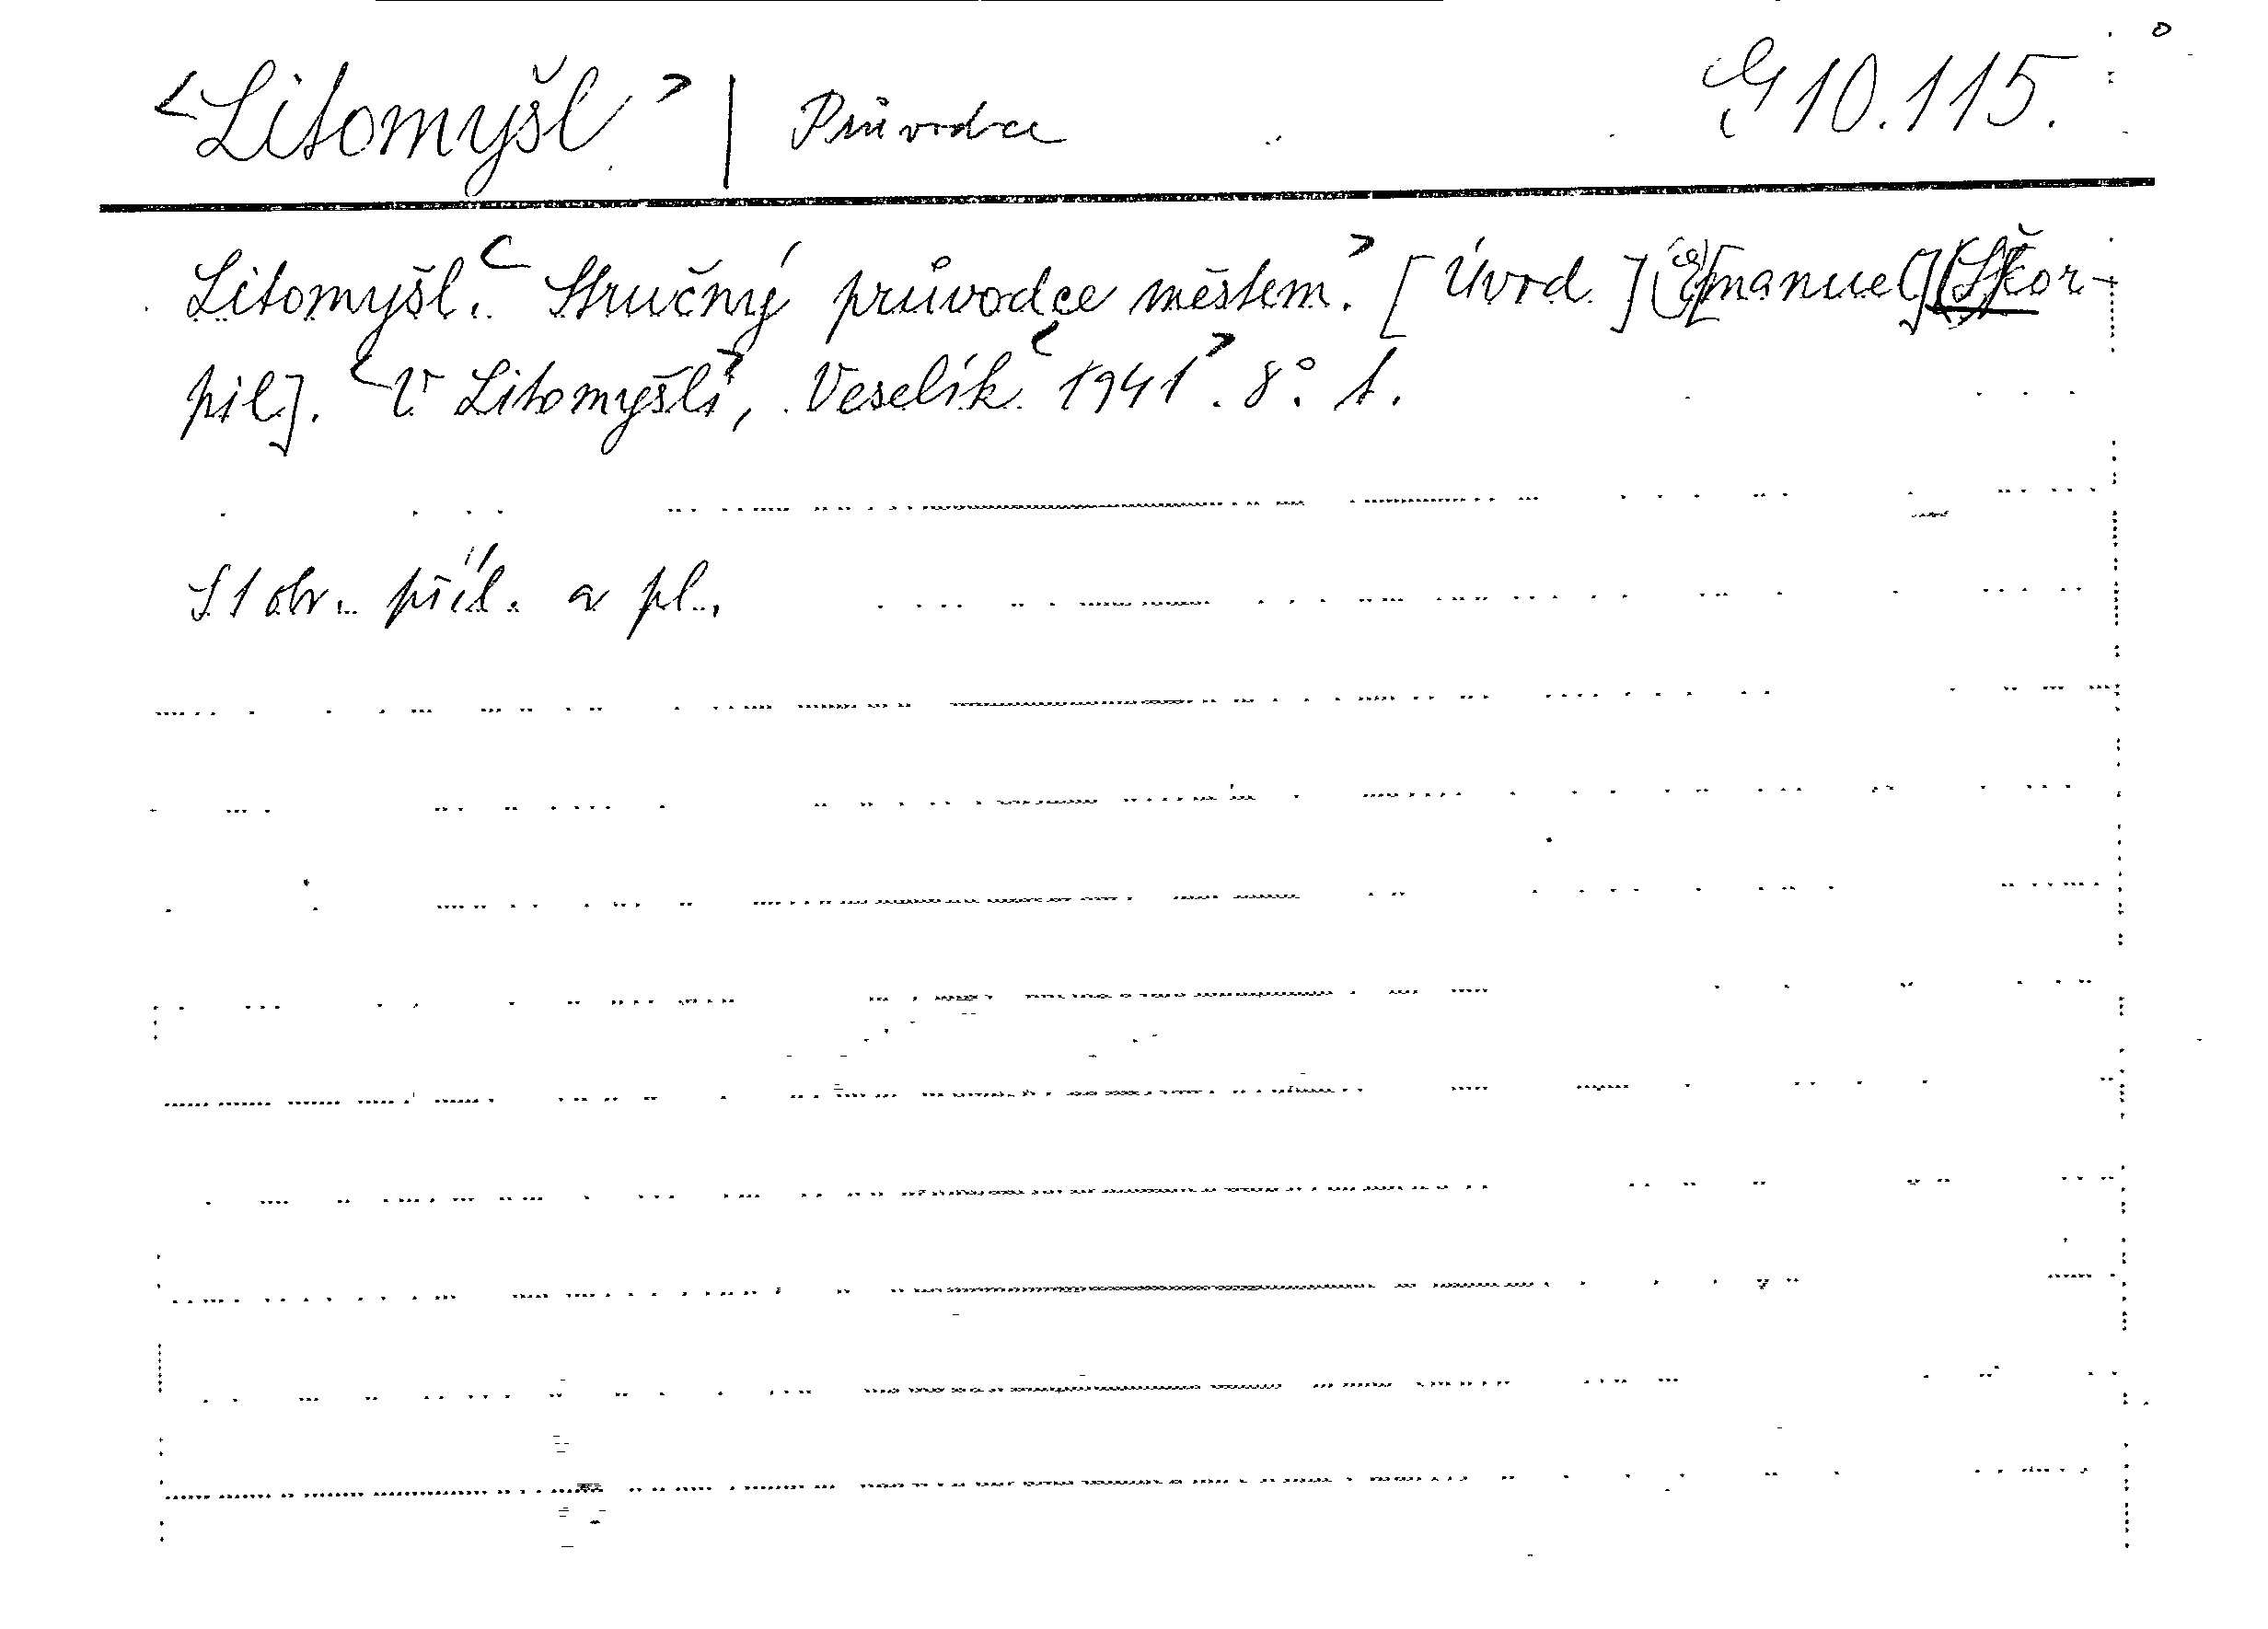 <Litomyšl> | Průvodce G 10.115.
Litomyšl. <Stručný průvodce městem.> [Úvod.] E[manuel] Škor-
pil]. <V Litomyšli>, Veselík <1941>. 8°. 1.
S 1 obr. příl. a pl.